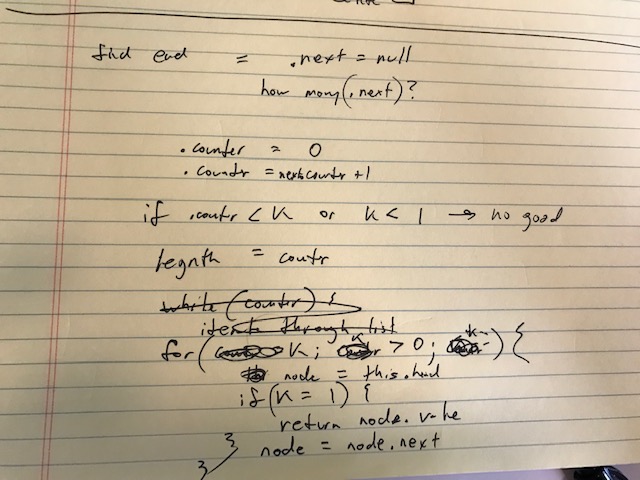 find end = .next = null
how many (.next)?
. counter = 0
. counter = next.counter + 1
if .counter < K or K < 1 → no good
legnth = counter
while (counter) {
iterate through list
for ( K; K > 0; K-- ) {
node = this.head
if (K = 1) {
return node.value
} node = node.next
}